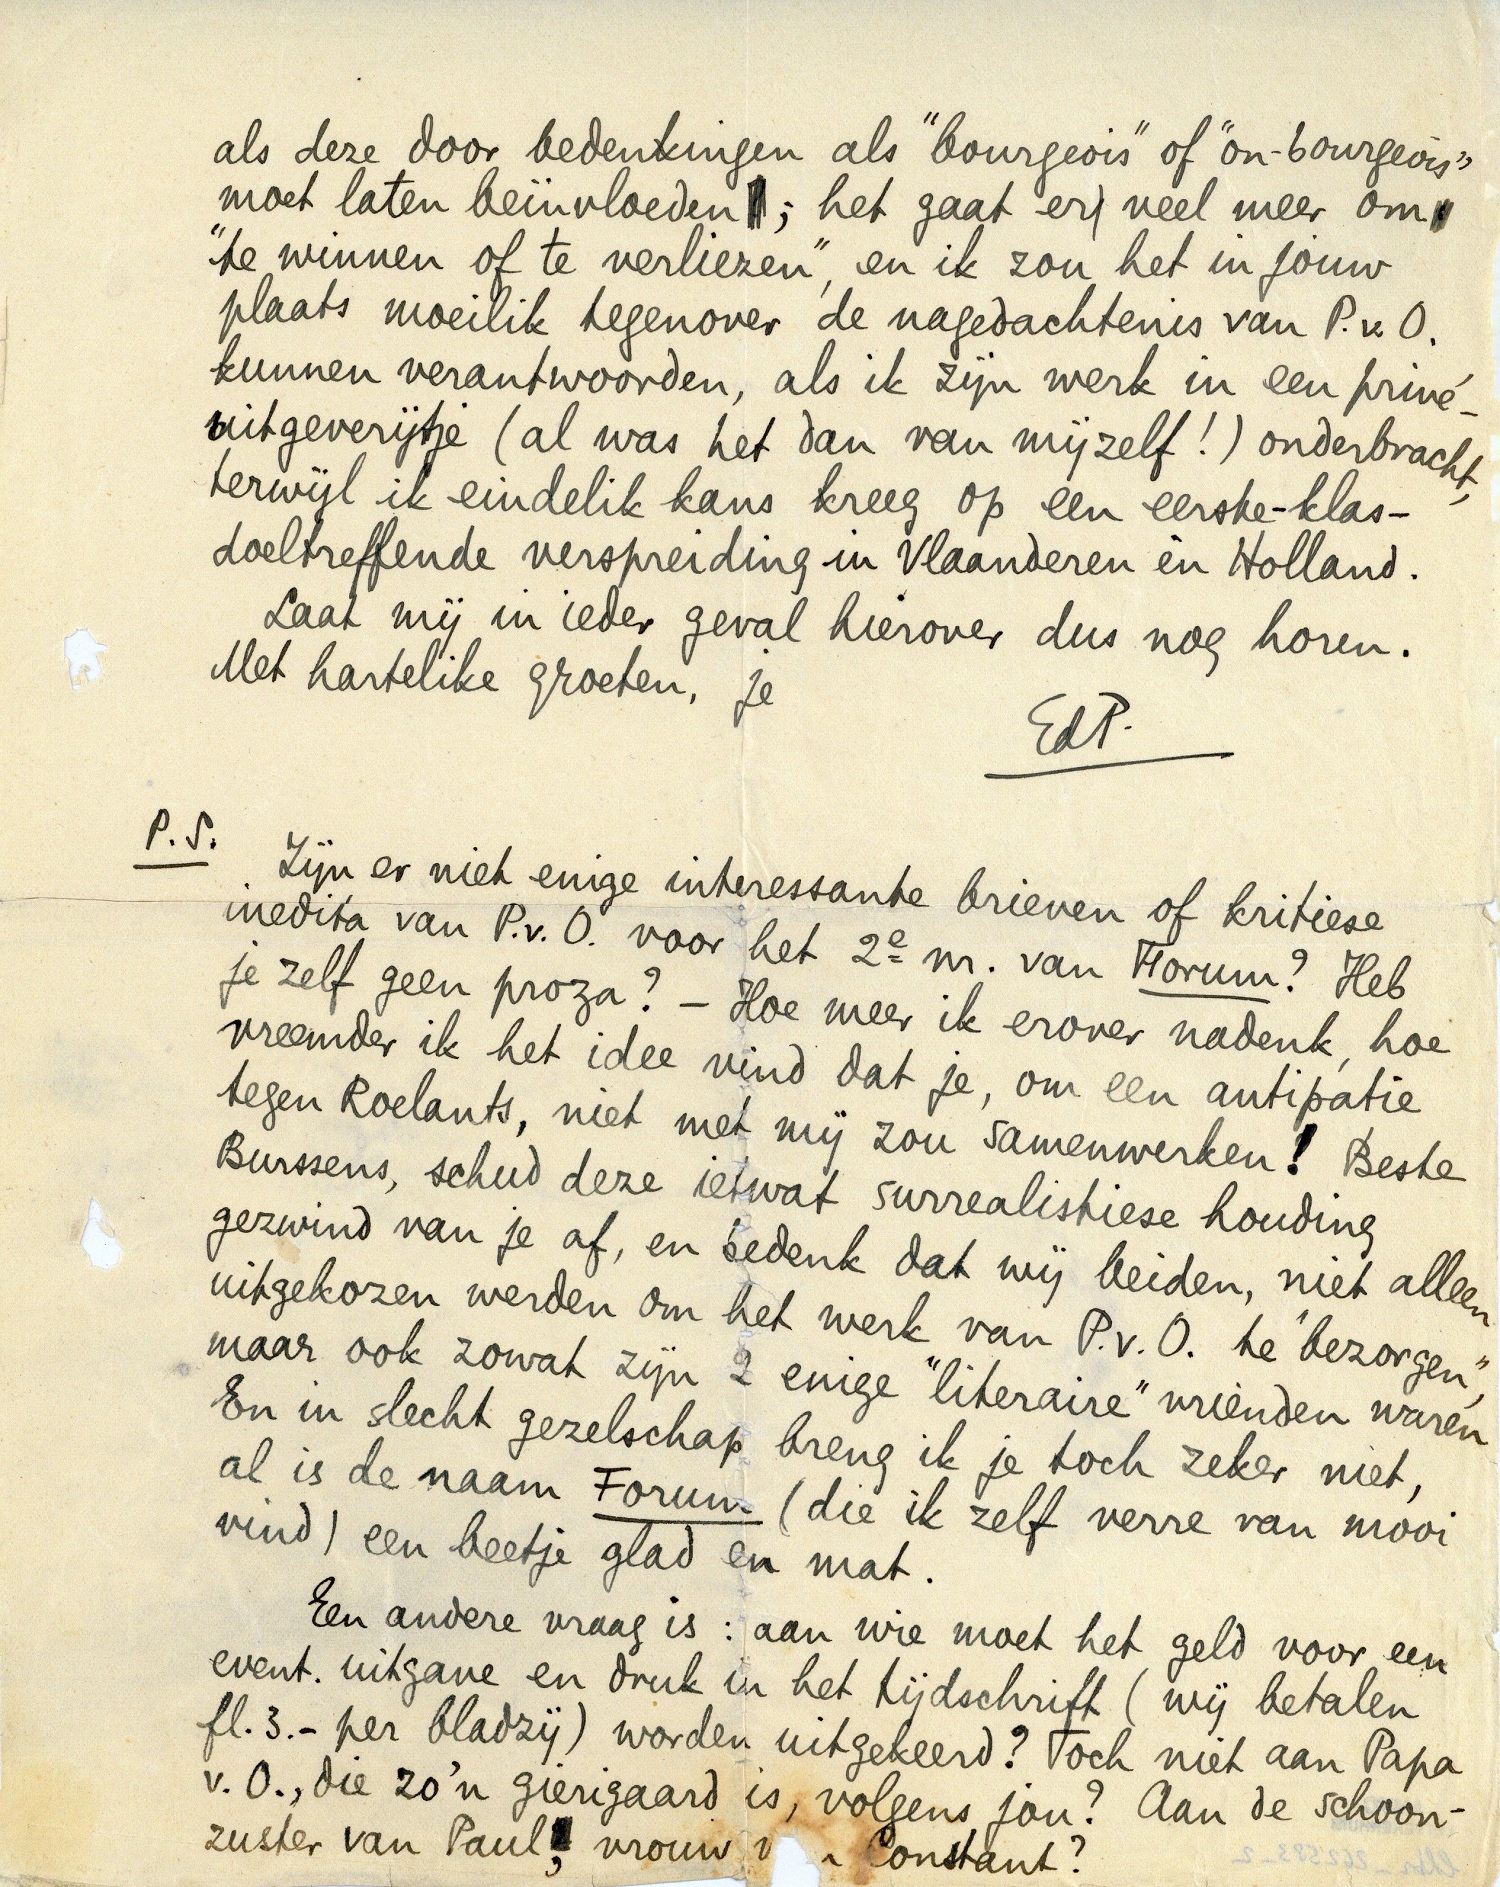 als deze door bedenkingen als "bourgeois" of "on-bourgeois"
moet laten beïnvloeden; het gaat er veel meer om
"te winnen of te verliezen", en ik zou het in jouw
plaats moeilik tegenover de nagedachtenis van P.v.O.
kunnen verantwoorden, als ik zijn werk in een privé-
uitgeverijtje (al was het dan van mijzelf!) onderbracht,
terwijl ik eindelik kans kreeg op een eerste-klas-
doeltreffende verspreiding in Vlaanderen èn Holland.
Laat mij in ieder geval hierover dus nog horen.
Met hartelike groeten, je
EdP.
P.S. Zijn er niet enige interessante brieven of kritiese
inedita van P.v.O. voor het 2e nr. van Forum? Heb
je zelf geen proza? – Hoe meer ik erover nadenk, hoe
vreemder ik het idee vind dat je, om een antipatie
tegen Roelants, niet met mij zou samenwerken! Beste
Burssens, schud deze ietwat surrealistiese houding
gezwind van je af, en bedenk dat wij beiden, niet alleen
uitgekozen werden om het werk van P.v.O. te "bezorgen",
maar ook zowat zijn 2 enige "literaire" vrienden waren
En in slecht gezelschap breng ik je toch zeker niet,
al is de naam Forum (die ik zelf verre van mooi
vind) een beetje glad en mat.
Een andere vraag is: aan wie moet het geld voor een
event. uitgave en druk in het tijdschrift (wij betalen
fl. 3.– per bladzij) worden uitgekeerd? Toch niet aan Papa
v. O., die zo'n gierigaard is, volgens jou? Aan de schoon-
zuster van Paul, vrouw Constant?